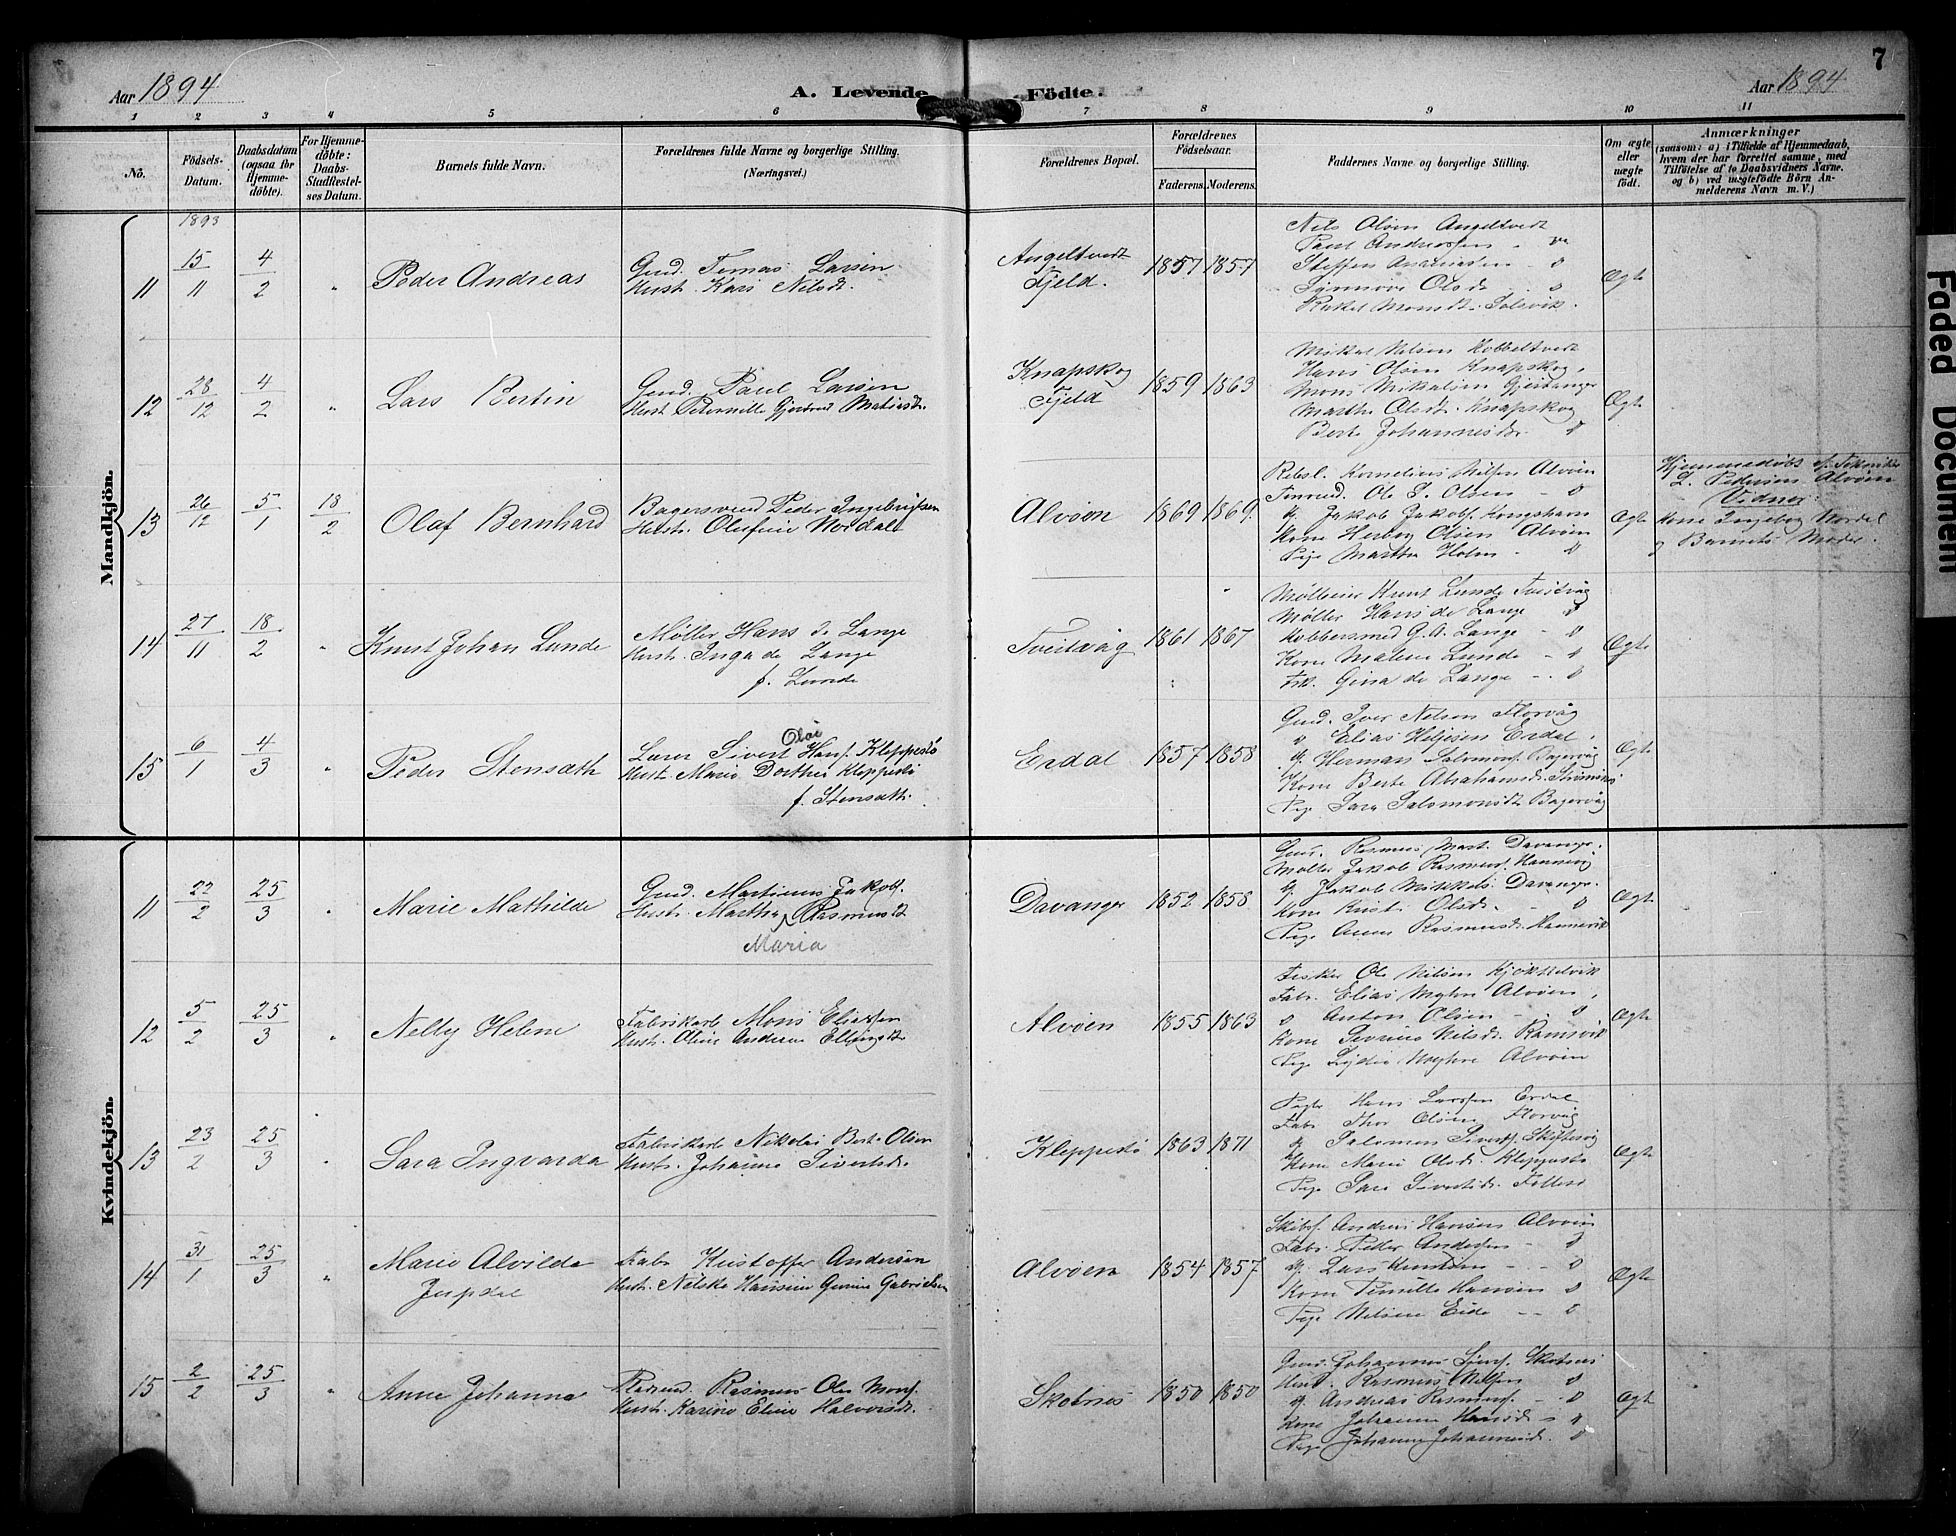 7
Aar 1894
A. Levende Födte.
Aar 1894
1 2 3 4 5 6 7 8 9 10 11
No.
Födsels-
Datum.
Daabsdatum
(ogsaa for
Hjemme-
döbte).
For Hjemme-
döbte:
Daabs-
Stadfæstel-
ses Datum.
Barnets fulde Navn.
Forældrenes fulde Navne og borgerlige Stilling.
(Næringsvei.)
Forældrenes Bopæl.
Forældrenes
Födselsaar.
Faderens. Moderens.
Faddernes Navne og borgerlige Stilling.
Om ægte
eller
uægte
födt.
Anmærkninger
(saasom: a) i Tilfælde af Hjemmedaab,
hvem der har forrettet samme, med
Tilföielse af to Daabsvidners Navne.
og b) ved uægtefödte Börn An-
melderens Navn m. V.)
Mandkjön.
1893
11 15/11 4/2 " Peder Andreas
Gmd. Tomas Larsen
Hust. Kari Nilsdt.
Angeltvedt
Fjeld.
1857 1857
Nils Olsen Angeltvedt
Paul Andreassen
Steffen
Synnøve Olsdt
Rakel Monsdt. Solsvik.
Ægte
12 28/12 4/2 " Lars Bertin
Gmd. Paul Larsen
Hust. Peternille Gjertrud Matiasdt.
Knapskog
Fjeld
1859 1863
Mikal Nilsen Kobbeltvedt
Hans Olsen Knapskog
Mons Mikalsen Geitanger
Martha Olsdt. Knapskog
Berte Johannesdt. "
Ægte
13 26/12 5/1 18/2 Olaf Bernhard
Bagersvend Peder Ingebrigtsen
Hust. Olufine Nordal
Alvøen
1869 1869
Rebsl. Kornelius Nilsen Alvøen
Ole L. Olsen "
Jakob Jakobs. Kongshavn
Kone Herborg Olsen Alvøen
Pige Martha Holm "
Ægte
Hjemmedøbt af
L. Pedersen Alvøen
Vidner:
Kone Ingeborg Nordal
og Barnets Moder.
14 27/11 18/2 " Knut Johan Lunde
Møller Hans de Lange
Hust. Inga de Lange
f. Lunde
Tveitvåg
1861 1867
Knut Lunde Tveitvåg
Møller Hans de Lange "
Kobbersmed G. A. Lange "
Kone Malene Lunde "
Frk. Gina de Lange "
Ægte
15 6/1 4/3 " Peder Stensæth
Olai
Lærer Sivert Hans. Kleppestø
Hust. Marie Dorthea Kleppestø
f. Stensæth.
Erdal
1857 1858
Gmd. Iver Nelsen Florvåg
" Elias Heljesen Erdal
" Herman Salomons.
Kone Berte Abrahamsdt.
Pige Sara Salomonsdt.
Ægte
Kvindekjön.
11 22/2 25/3 " Marie Mathilde
Gmd. Martinus Jakobs.
Hust. Martha Rasmusdt
Maria
Davanger
1852 1858
Gmd. Rasmus Mart. Davanger
Møller Jakob Rasmus. Hannevig
" Jakob Mikkels. Davanger
Kone Kristi Olsdt. "
Pige Anna Rasmusdt. Hannevik
Ægte
12 5/2 25/3 " Nelly Helene
Fabrikarb. Mons Eliassen
Hust. Oline Andrea Ellingsdt
Alvøen
1855 1863
Fisker Ole Nilsen Kjøkkelvik
Fabr. Elias Myhre Alvøen
" Anton Olsen "
Kone Severine Nilsdt. Ramsvik
Pige Lydia Myhre Alvøen
Ægte
13 23/2 25/3 " Sara Ingvarda
Fabrikarb. Nikolai Bert. Olsen
Hust. Johanne Sivertsdt.
Kleppestø
1863 1871
Hans Larssen Erdal
Fab. Thor Olsen Florvåg
" Salomon Siverts. Skiftesvig
Kone Marie Olsdt. Kleppestø
Pige Sara Sivertsdt. Follesø
Ægte
14 31/1 25/3 " Marie Alvilde
Jupdal
Fabr. Kristoffer Andersen
Hust. Nelske Hansine Gurine Gabrielsen
Alvøen
1854 1857
Skibsf. Andreas Hansen Alvøen
Fabr. Peder Andersen "
" Lars Knudsen "
Kone Pernille Hansen "
Pige Nilsine Eide "
Ægte
15 2/2 25/3 " Anne Johanne
Rasmus Olai Mons.
Hust. Karine Eline Halvorsdt.
Skotnes
1850 1850
Gmd. Johannes Skotnes
Rasmus Nilsen "
" Andreas Rasmuss. "
Kone Johanna Hansdt. "
Pige Johanne Johannesdt. "
Ægte
Faded Document